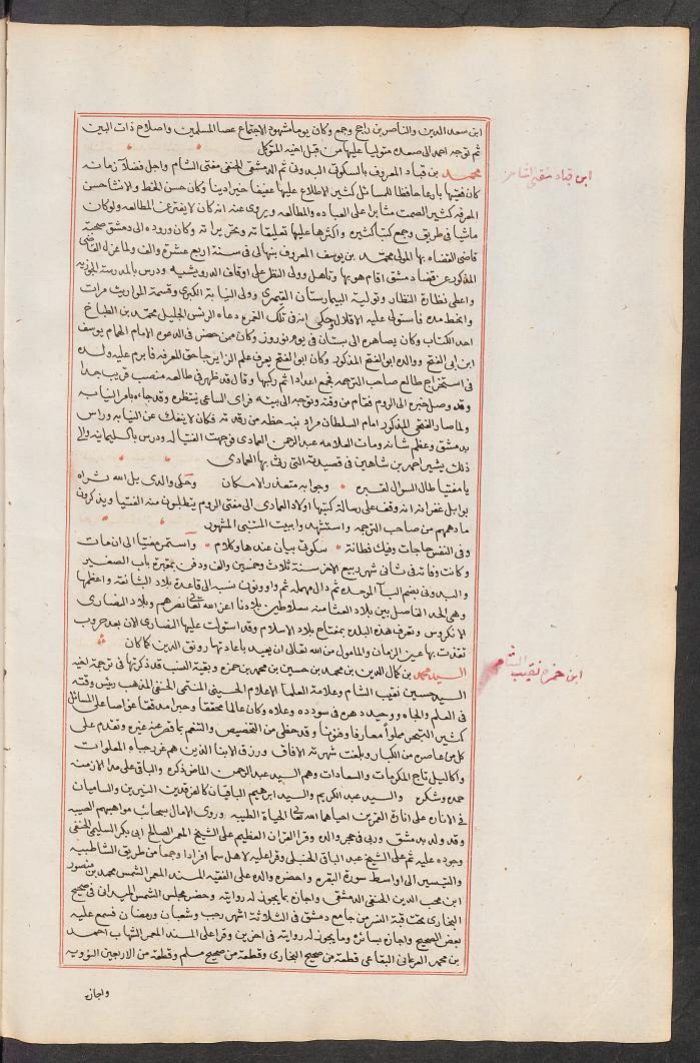 ابن سعد الدين والناصر بن راجح وجمع وكان يوما مشهود الاجتماع عصا المسلمين واصلاح ذات البين
ثم توجه احمد الى صعده متوليا عليها من قبل اخيه المتوكل
محمد بن قباد المعروف بالسكوتى البدوني ثم الدمشقي الحنفي مفتى الشام واجل فضلآ زمانه
ابن قباد مفتي الشام
كان فقيها بارعا حافظا للمسائل كثير الاطلاع عليها عفيفا خيرا دينا وكان حسن الخط والانشا حسن
المعرفه كثير الصمت مثابرا على العباده والمطالعه ويروى عنه انه كان لا يفتر عن المطالعه ولو كان
ماشيا في طريق وجمع كتبا كثيره واكثرها عليها تعليقاته وتحريراته وكان وروده الى دمشق صحبة
قاضى القضاه بها المولى محمد بن يوسف المعروف بنهالى في سنة اربع عشرة والف ولما عزل القاضى
المذكور عن قضا دمشق اقام هو بها وتاهل وولى النظر على اوقاف الدرويشيه ودرس بالمدرسة الجوزيه
واعطى نظارة النظار وتولية البيمارستان القيمري وولى النيابة الكبرى وقسمة المواريث مرات
وانحط مدة فاستولى عليه الاقلال وحكى انه في تلك الفتره دعاه الرئس الجليل محمد بن الطباخ
احد الكتاب وكان يصاهره الى بستان في يوم نوروز وكان ممن حضر في الدعوه الامام الهمام يوسف
ابن ابى الفتح ووالده ابو الفتح المذكور وكان ابو الفتح يعرف علم الزايرجا حق المعرفه فابرم عليه ولده
في استخراج طالع صاحب الترجمه فجمع اعدادا ثم ركبها وقال قد ظهر في طالعه منصب قريب جدا
وقد وصل خبره الى الروم فقام من وقته وتوجه الى بيته فراى الساعى ينتظره وقد جاءه بامر النيابه
ولما صار الفتحى المذكور امام السلطان مراد نبه حظه من رقدته فكان لا ينفك عن النيابه وراس
بدمشق وعظم شانه ومات العلامه عبد الرحمن العمادى فوجهت الفتيا له ودرس بالسليمانيه والى
ذلك يشير احمد بن شاهين في قصيدته التى رثى بها العمادى
يا مفتيا طال السوال لقبره وجوابه متعذر الامكان وحكى والدى بل الله ثراه
بوابل غفرانه انه وقف على رسالة كتبها اولاد العمادى الى مفتى الروم يتطلبون منه الفتيا ويذكرون
ما دهمهم من صاحب الترجمه واستشهدوا ببيت المتنبى المشهور
وفى النفس حاجات وفيك فطانة سكوتى بيان عندها وكلام واستمر مفتيا الى ان مات
وكانت وفاته في ثانى شهر ربيع الاخر سنة ثلاث وخمسين والف ودفن بمقبرة باب الصغير
والبدونى بضم البآ الموحده ثم دال مهمله ثم واو ونون نسبه الى قاعدة بلاد الشائقة واعظمها
وهى الحد الفاصل بين بلاد العثامنه سلاطين بلادنا اعز الله تعالى نصرهم وبلاد النصارى
الانكروس وتعرف هذه البلده بمفتاح بلاد الاسلام وقد استولت عليها النصارى الان بعد حروب
تقذت بها عين الزمان والمامول من الله تعالى ان يعيد باعادتها رونق الدين كما كان
السيد محمد بن كمال الدين بن محمد بن حسين بن محمد بن حمزه وبقية النسب قد ذكرتها في ترجمة اخيه
ابن حمزه نقيب الشام
السيد حسين نقيب الشام وعلامة العلما الاعلام الحسينى المنتمى الحنفى المذهب رئيس وقته
في العلم والجاه ووحيد دهره في سودده وعلاه وكان عالما محققا وحبرا مدققا غواصا على المسائل
كثير التبحر مملوأ معارفا وفنونا وقد حظى من التخصيص والتنعم بما قصر عنه غيره وتقدم على
كل من عاصره من الكبار وبلغت شهرته الافاق ورزق الابنا الذين هم غرر جباه المعلوات
واكاليل تاج المكرمات والسادات وهم السيد عبد الرحمن الماضى ذكره والباقى على مدا الازمنه
حمده وشكره والسيد عبد الكريم والسيد ابراهيم الباقيان كالفرقدين النيرين والساميان
في الاناره على انارة القمرين احياهما الله تعالى الحياة الطيبه وروى الامال بسحائب مواهبهم الصيبه
وقد ولد بدمشق وربى في حجر والده وقرا القران العظيم على الشيخ المعمر الصالح ابى بكر السليمى الحنفى
وجوده عليه ثم على الشيخ عبد الباقى الحنبلى وقرا عليه لاهل سما افرادا وجمعا من طريق الشاطبيه
والتيسير الى اواسط سورة البقره واحضره والده على الفقيه المسند المعمر الشمس محمد بن منصور
ابن محب الدين الحنفى الدمشقى واجازه بما يجوز له روايته وحضر مجلس الشمس الميدانى في صحيح
البخارى تحت قبة النسر من جامع دمشق في الثلاثة اشهر رجب وشعبان ورمضان فسمع عليه
بعض الصحيح واجازه بسائره وما يجوز له روايته في اخرين وقرا على المسند المعمر الشهاب احمد
بن محمد العرعانى البقاعى قطعة من صحيح البخارى وقطعة من صحيح مسلم وقطعة من الاربعين النوويه
واجازه